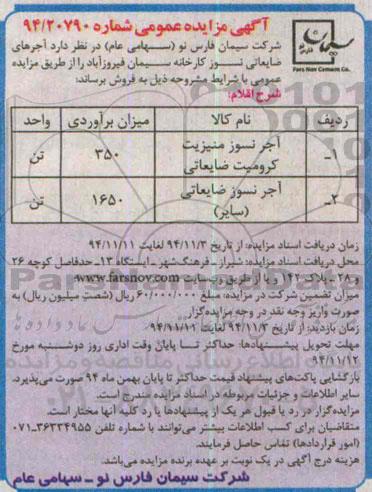 آگهی مزایده عمومی شماره ۹۴/۲۰۷۹۰
سیمان فارس نو
Fars Nov Cement Co.
شرکت سیمان فارس نو (سهامی عام) در نظر دارد آجرهای
ضایعاتی نسوز کارخانه سیمان فیروزآباد را از طریق مزایده
عمومی با شرایط مشروحه ذیل به فروش برساند:
شرح اقلام:
ردیف نام کالا میزان برآوردی واحد
۱ـ آجر نسوز منیزیت کرومیت ضایعاتی ۳۵۰ تن
۲ـ آجر نسوز ضایعاتی (سایر) ۱۶۵۰ تن
زمان دریافت اسناد مزایده: از تاریخ ۹۴/۱۱/۳ لغایت ۹۴/۱۱/۱۱
محل دریافت اسناد مزایده: شیراز ـ فرهنگ‌شهر ـ ایستگاه ۱۳ـ حدفاصل کوچه ۲۶
و ۲۸ـ پلاک ۱۴۲ و یا از طریق وب‌سایت www.farsnov.com
میزان تضمین شرکت در مزایده: مبلغ ۶۰/۰۰۰/۰۰۰ ریال (شصت میلیون ریال) به
صورت واریز وجه نقد در وجه مزایده‌گزار
زمان بازدید: از تاریخ ۹۴/۱۱/۳ لغایت ۹۴/۱۱/۱۱
مهلت تحویل پیشنهادها: حداکثر تا پایان وقت اداری روز دوشنبه مورخ
۹۴/۱۱/۱۲
بازگشایی پاکت‌های پیشنهاد قیمت حداکثر تا پایان بهمن ماه ۹۴ صورت می‌پذیرد.
سایر اطلاعات و جزئیات مربوطه در اسناد مزایده مندرج است.
مزایده‌گزار در رد یا قبول هر یک از پیشنهادها یا رد کلیه آنها مختار است.
متقاضیان برای کسب اطلاعات بیشتر می‌توانند با شماره تلفن ۳۶۳۳۴۹۵۵ـ۰۷۱
(امور قراردادها) تماس حاصل فرمایند.
هزینه درج آگهی در یک نوبت بر عهده برنده مزایده می‌باشد.
شرکت سیمان فارس نو ـ سهامی عام